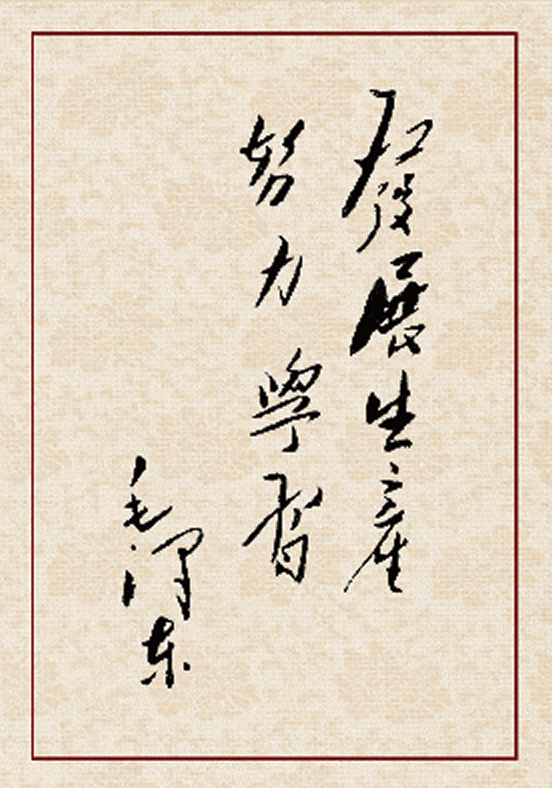 發展生產
努力學習
毛澤东